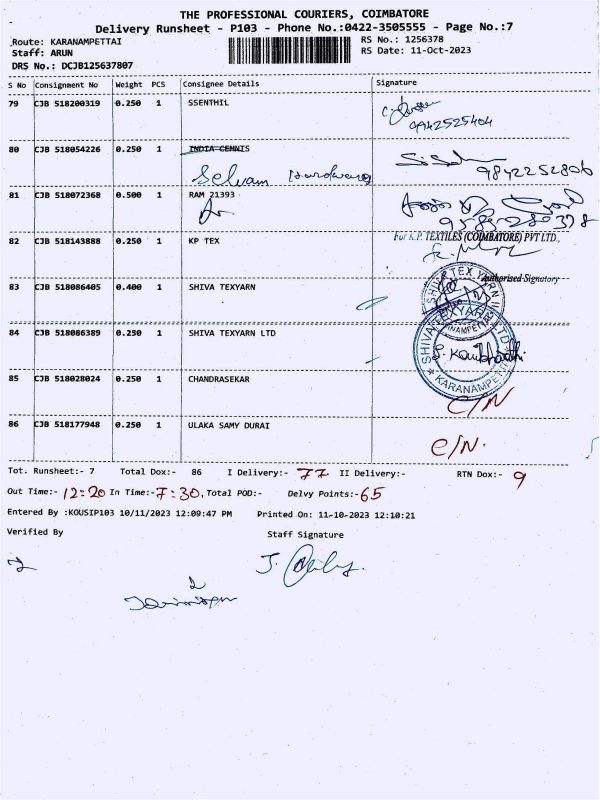 THE PROFESSIONAL COURIERS, COIMBATORE
Delivery Runsheet - P103 - Phone No.:0422-3505555 - Page No.:7
Route: KARANAMPETTAI RS No.: 1256378
Staff: ARUN RS Date: 11-Oct-2023
DRS No.: DCJB125637807
S No Consignment No Weight PCS Consignee Details Signature
79 CJB 518200319 0.250 1 SSENTHIL
9942525404
80 CJB 518054226 0.250 1 INDIA CEMNIS
Selvam Hardwares 9842252806
81 CJB 518072368 0.500 1 RAM 21393
9585280378
82 CJB 518143888 0.250 1 KP TEX For K.P. TEXTILES (COIMBATORE) PVT LTD.,
Authorised Signatory
83 CJB 518086405 0.400 1 SHIVA TEXYARN
84 CJB 518086389 0.250 1 SHIVA TEXYARN LTD
SHIVA TEXYARN LTD
KARANAMPETTAI
85 CJB 518028024 0.250 1 CHANDRASEKAR C/N
86 CJB 518177948 0.250 1 ULAKA SAMY DURAI C/N.
Tot. Runsheet:- 7 Total Dox:- 86 I Delivery:- 77 II Delivery:- RTN Dox:- 9
Out Time:- 12:20 In Time:- 7:30, Total POD:- Delvy Points:- 65
Entered By :KOUSIP103 10/11/2023 12:09:47 PM Printed On: 11-10-2023 12:10:21
Verified By Staff Signature